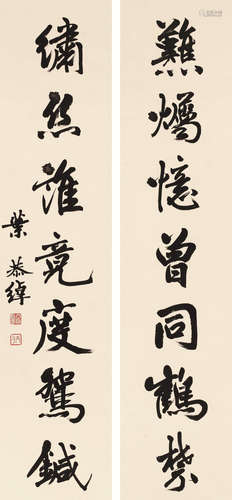 憶曾同鶴禁
繡絲誰竟度鴛鍼
葉恭綽